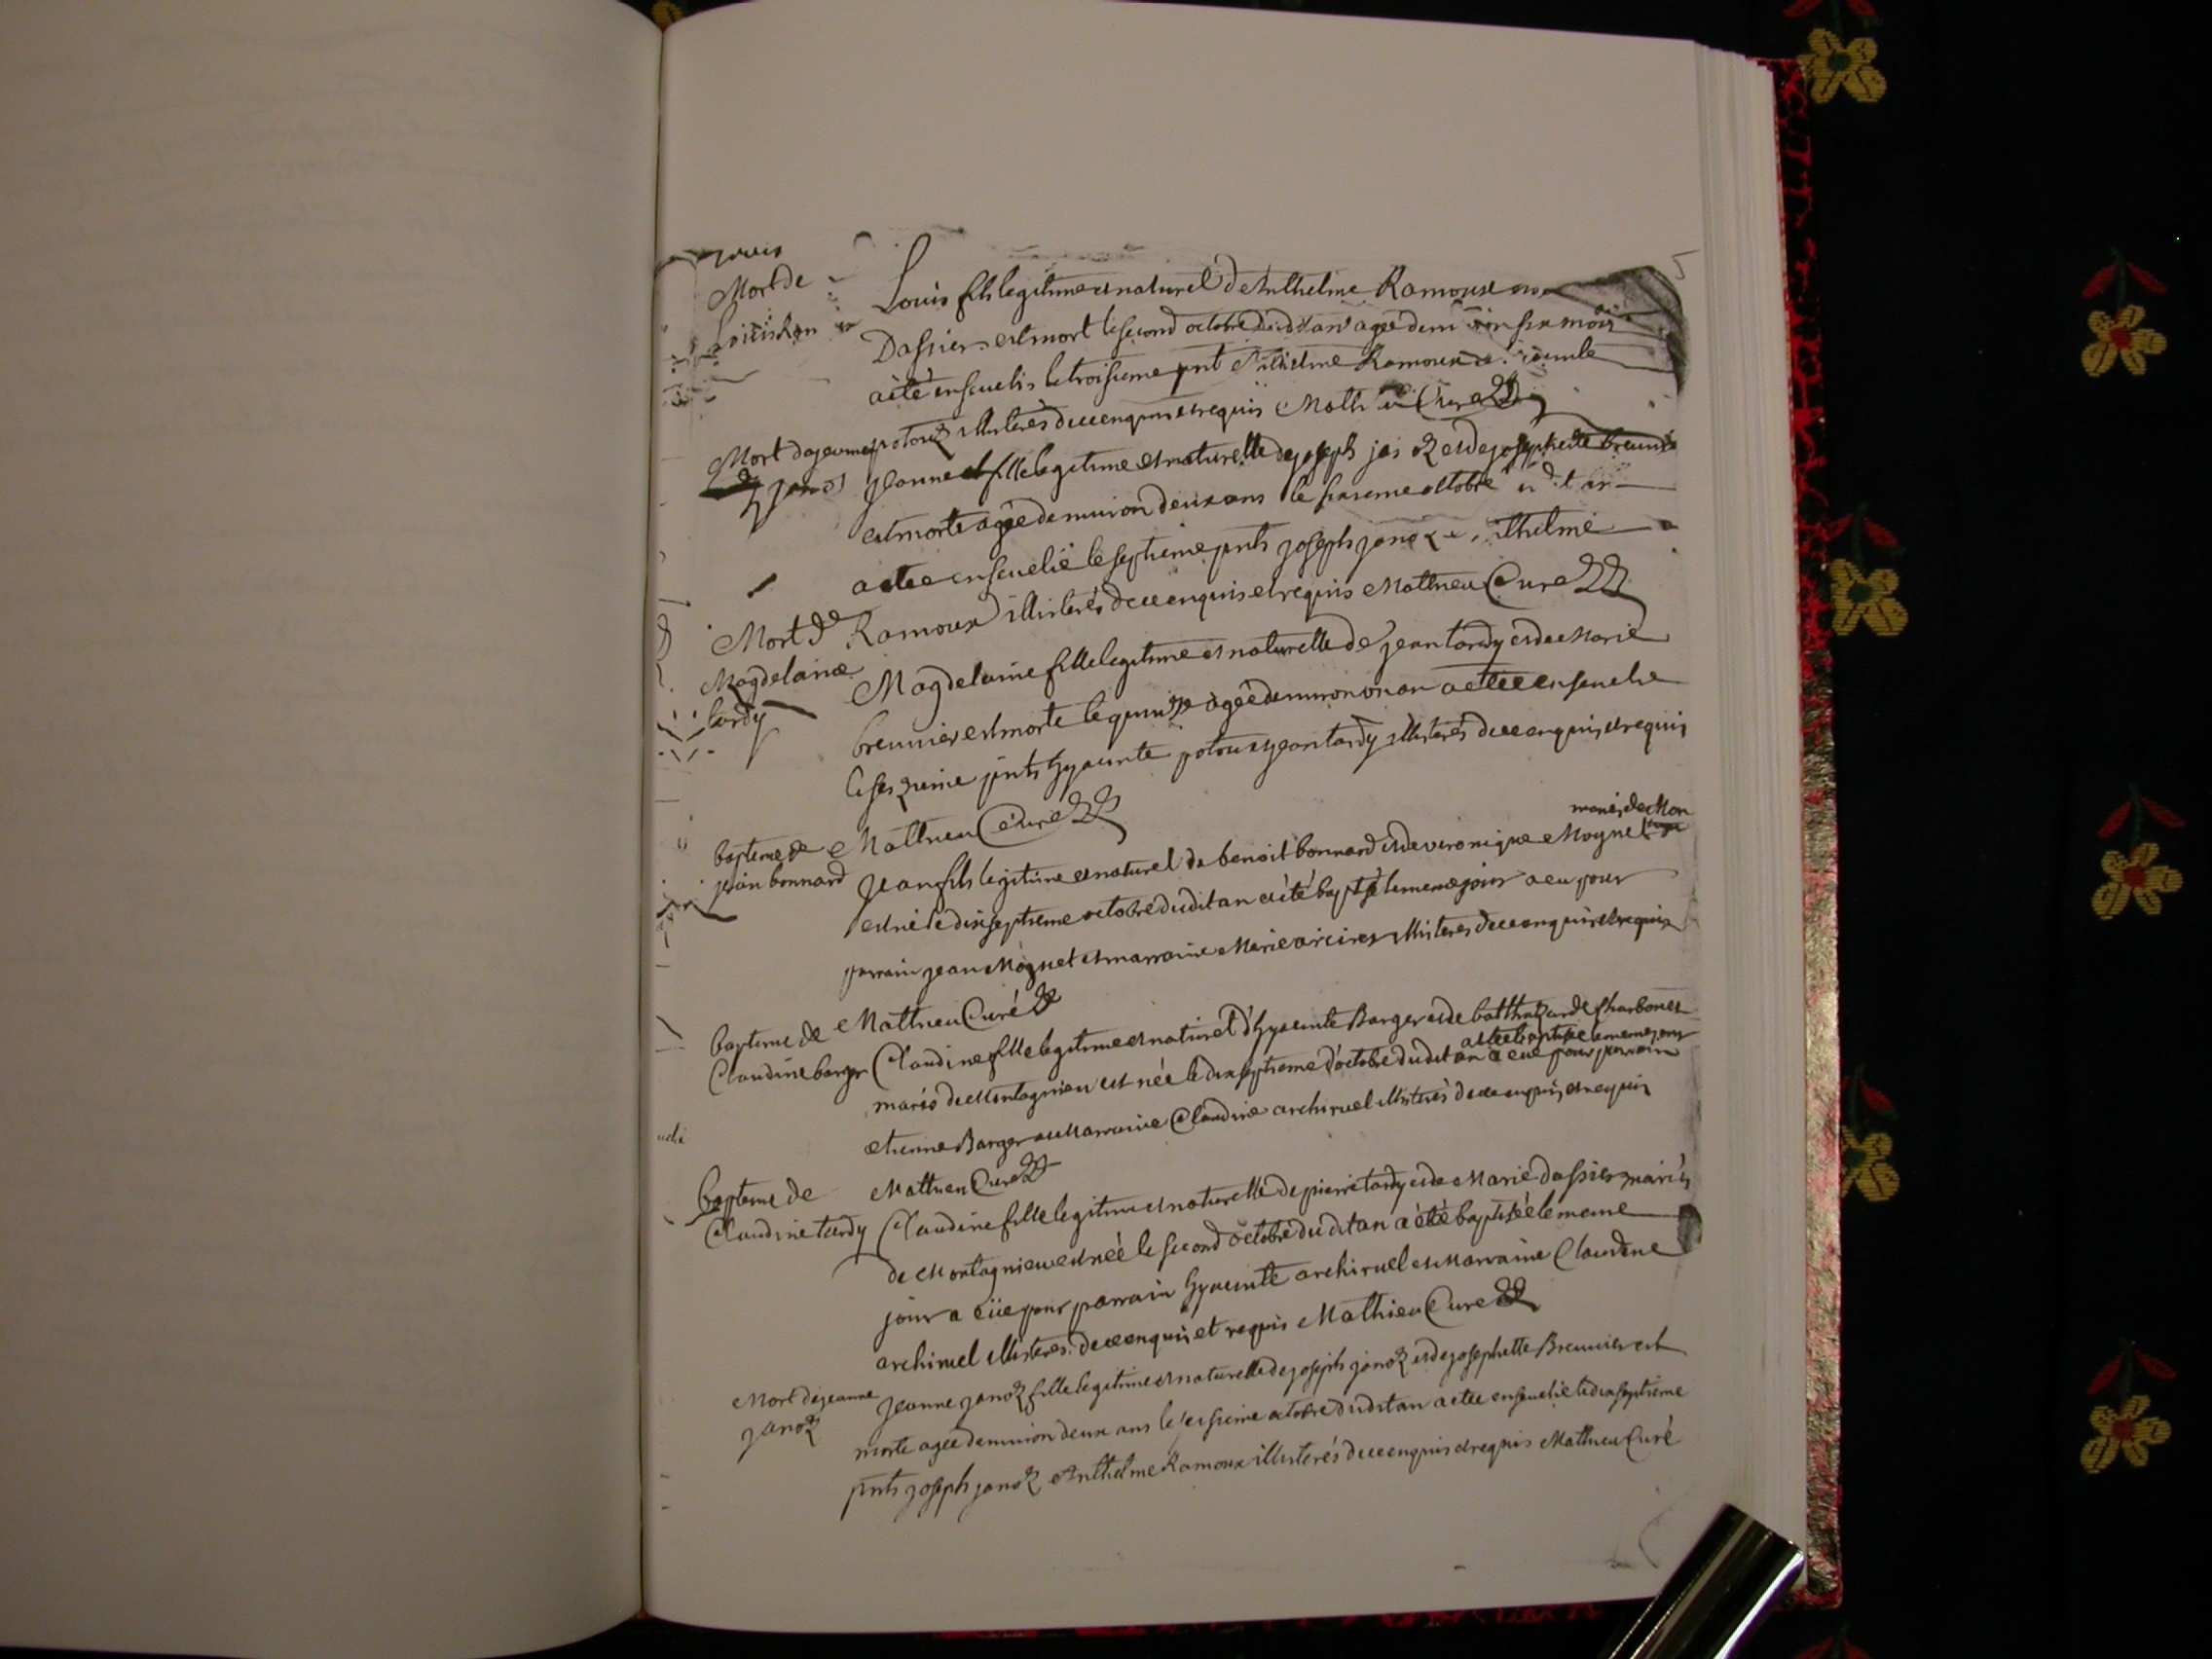 Mort de
Louis fils legitime et naturel d'Anthelme Ramoux
Dassier est mort le second octobre dudit an agé denviron six mois
a été enseveli le troisieme pnt Anthelme Ramoux
Mort de jeanne potoux illiterés de ce enquis et requis Mathieu Curé
janoz jeanne fille legitime et naturelle de joseph janoz et de josephette breunier
est morte agée denviron deux ans le sixieme octobre dudit an
a etee ensevelie le septieme pnts joseph janoz anthelme
Mort de Ramoux illiterés de ce enquis et requis Mathieu Curé
Magdelaine
tardy
Magdelaine fille legitime et naturelle de jean tardy et de Marie
breunier est morte le quinze agée denviron un an a etee ensevelie
le sezieme pnts hyacinte potoux jean tardy illiterés de ce enquis et requis
Mathieu Curé
bapteme de
jean bonnard
mariés de Mon
jean fils legitime et naturel de benoit bonnard et de veronique Moynet
est né le dixseptieme octobre dudit an a été baptisé le meme jour a eu pour
parrain jean Moynet et marraine Marie illiteres de ce enquis et requis
Mathieu Curé
bapteme de
Claudine barger
Claudine fille legitime et naturel d'hyacinte Barger et de balthazarde Charbonet
a etee baptisee le meme jour
mariés de Montagnieu est née le dixseptieme d'octobre dudit an a eue pour parrain
etienne Barger et Marraine Claudine archiruel illiterés de ce enquis et requis
Mathieu Curé
bapteme de
Claudine tardy
Claudine fille legitime et naturelle de pierre tardy et de Marie dassier mariés
de Montagnieu est née le second octobre dudit an a été baptisée le meme
jour a eüe pour parrain hyacinte archiruel et Marraine Claudine
archiruel illiteres de ce enquis et requis Mathieu Curé
Mort de jeanne
janoz
jeanne janoz fille legitime et naturelle de joseph janoz et de josephette Breunier est
morte agée denviron deux ans le seizieme octobre dudit an a etee ensevelie le dixseptieme
pnts joseph janoz Anthelme Ramoux illiterés de ce enquis et requis Mathieu Curé